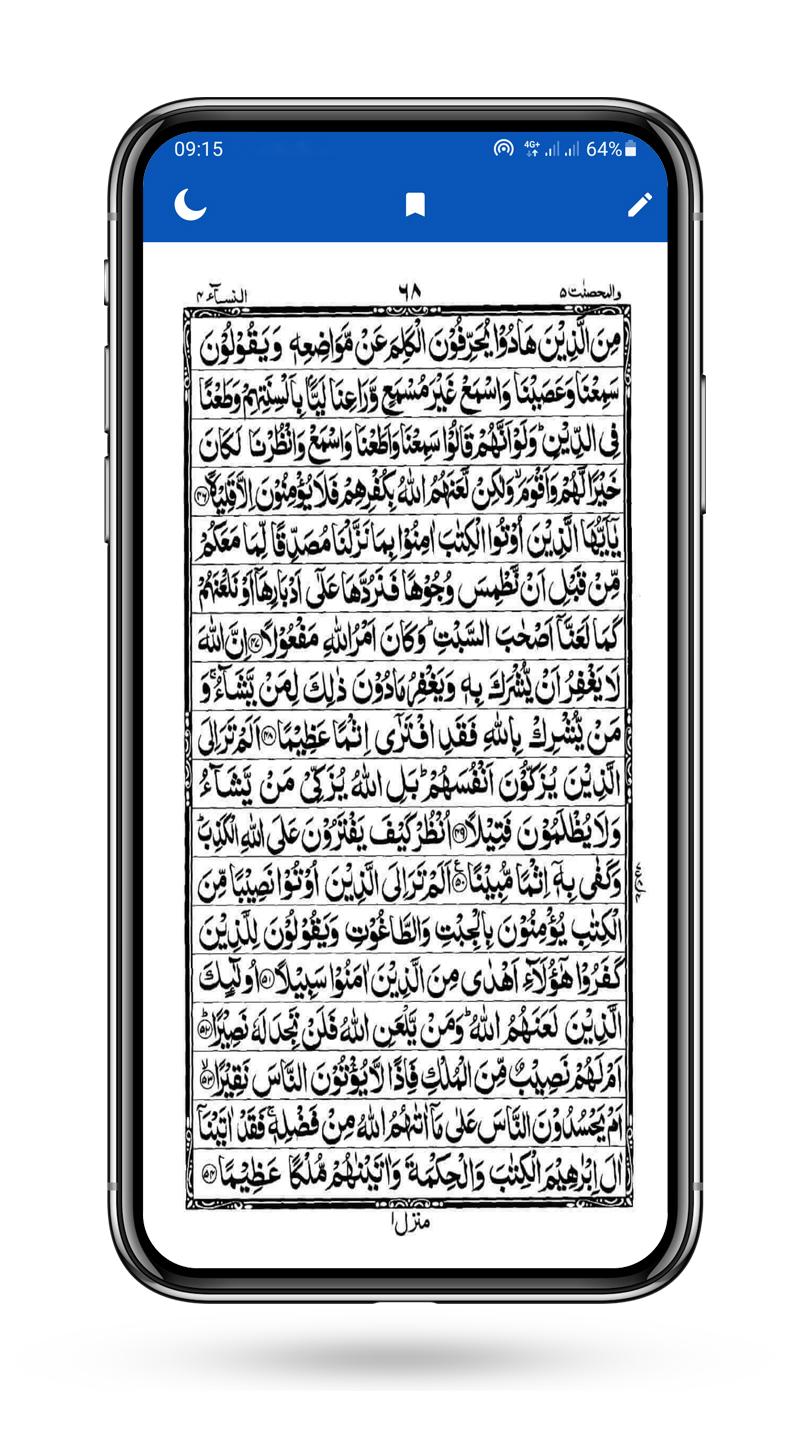 09:15 4G+ 64%
والمحصنت ۵ ۶۸ النسآء ۴
مِنَ الَّذِيْنَ هَادُوْا يُحَرِّفُوْنَ الْكَلِمَ عَنْ مَّوَاضِعِهٖ وَيَقُوْلُوْنَ
سَمِعْنَا وَعَصَيْنَا وَاسْمَعْ غَيْرَ مُسْمَعٍ وَّرَاعِنَا لَيًّۢا بِاَلْسِنَتِهِمْ وَطَعْنًا
فِى الدِّيْنِ ؕ وَلَوْ اَنَّهُمْ قَالُوْا سَمِعْنَا وَاَطَعْنَا وَاسْمَعْ وَانْظُرْنَا لَكَانَ
خَيْرًا لَّهُمْ وَاَقْوَمَ ۙ وَلٰكِنْ لَّعَنَهُمُ اللّٰهُ بِكُفْرِهِمْ فَلَا يُؤْمِنُوْنَ اِلَّا قَلِيْلًا ۴۶
يٰۤاَيُّهَا الَّذِيْنَ اُوْتُوا الْكِتٰبَ اٰمِنُوْا بِمَا نَزَّلْنَا مُصَدِّقًا لِّمَا مَعَكُمْ
مِّنْ قَبْلِ اَنْ نَّطْمِسَ وُجُوْهًا فَنَرُدَّهَا عَلٰٓى اَدْبَارِهَاۤ اَوْ نَلْعَنَهُمْ
كَمَا لَعَنَّاۤ اَصْحٰبَ السَّبْتِ ؕ وَكَانَ اَمْرُ اللّٰهِ مَفْعُوْلًا ۴۷ اِنَّ اللّٰهَ
لَا يَغْفِرُ اَنْ يُّشْرَكَ بِهٖ وَيَغْفِرُ مَا دُوْنَ ذٰلِكَ لِمَنْ يَّشَآءُ ۚ وَ
مَنْ يُّشْرِكْ بِاللّٰهِ فَقَدِ افْتَرٰۤى اِثْمًا عَظِيْمًا ۴۸ اَلَمْ تَرَ اِلَى
الَّذِيْنَ يُزَكُّوْنَ اَنْفُسَهُمْ ؕ بَلِ اللّٰهُ يُزَكِّىْ مَنْ يَّشَآءُ
وَلَا يُظْلَمُوْنَ فَتِيْلًا ۴۹ اُنْظُرْ كَيْفَ يَفْتَرُوْنَ عَلَى اللّٰهِ الْكَذِبَ ؕ
وَكَفٰى بِهٖۤ اِثْمًا مُّبِيْنًا ۵۰ اَلَمْ تَرَ اِلَى الَّذِيْنَ اُوْتُوْا نَصِيْبًا مِّنَ
الْكِتٰبِ يُؤْمِنُوْنَ بِالْجِبْتِ وَالطَّاغُوْتِ وَيَقُوْلُوْنَ لِلَّذِيْنَ
كَفَرُوْا هٰٓؤُلَآءِ اَهْدٰى مِنَ الَّذِيْنَ اٰمَنُوْا سَبِيْلًا ۵۱ اُولٰٓئِكَ
الَّذِيْنَ لَعَنَهُمُ اللّٰهُ ؕ وَمَنْ يَّلْعَنِ اللّٰهُ فَلَنْ تَجِدَ لَهٗ نَصِيْرًا ؕ ۵۲
اَمْ لَهُمْ نَصِيْبٌ مِّنَ الْمُلْكِ فَاِذًا لَّا يُؤْتُوْنَ النَّاسَ نَقِيْرًا ۙ ۵۳
اَمْ يَحْسُدُوْنَ النَّاسَ عَلٰى مَاۤ اٰتٰىهُمُ اللّٰهُ مِنْ فَضْلِهٖ ۚ فَقَدْ اٰتَيْنَاۤ
اٰلَ اِبْرٰهِيْمَ الْكِتٰبَ وَالْحِكْمَةَ وَاٰتَيْنٰهُمْ مُّلْكًا عَظِيْمًا ۵۴
منزل ۱